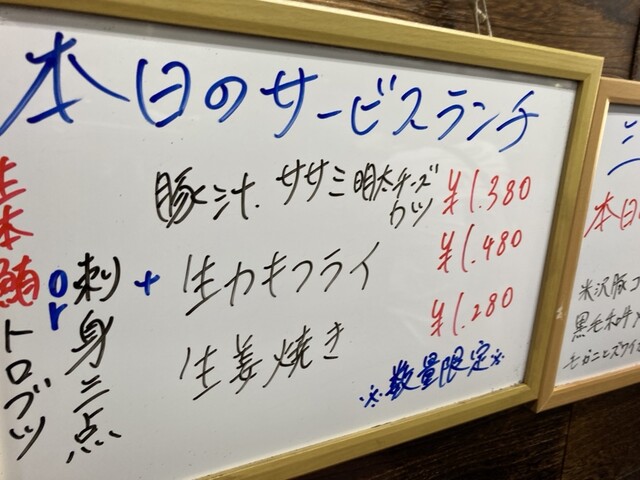 本日のサービスランチ
生本鮪トロブツ
or
刺身三点
+
豚汁、ササミ明太チーズカツ ¥1.380
生カキフライ ¥1.480
生姜焼き ¥1.280
※数量限定※
本日
米沢豚
黒毛和牛